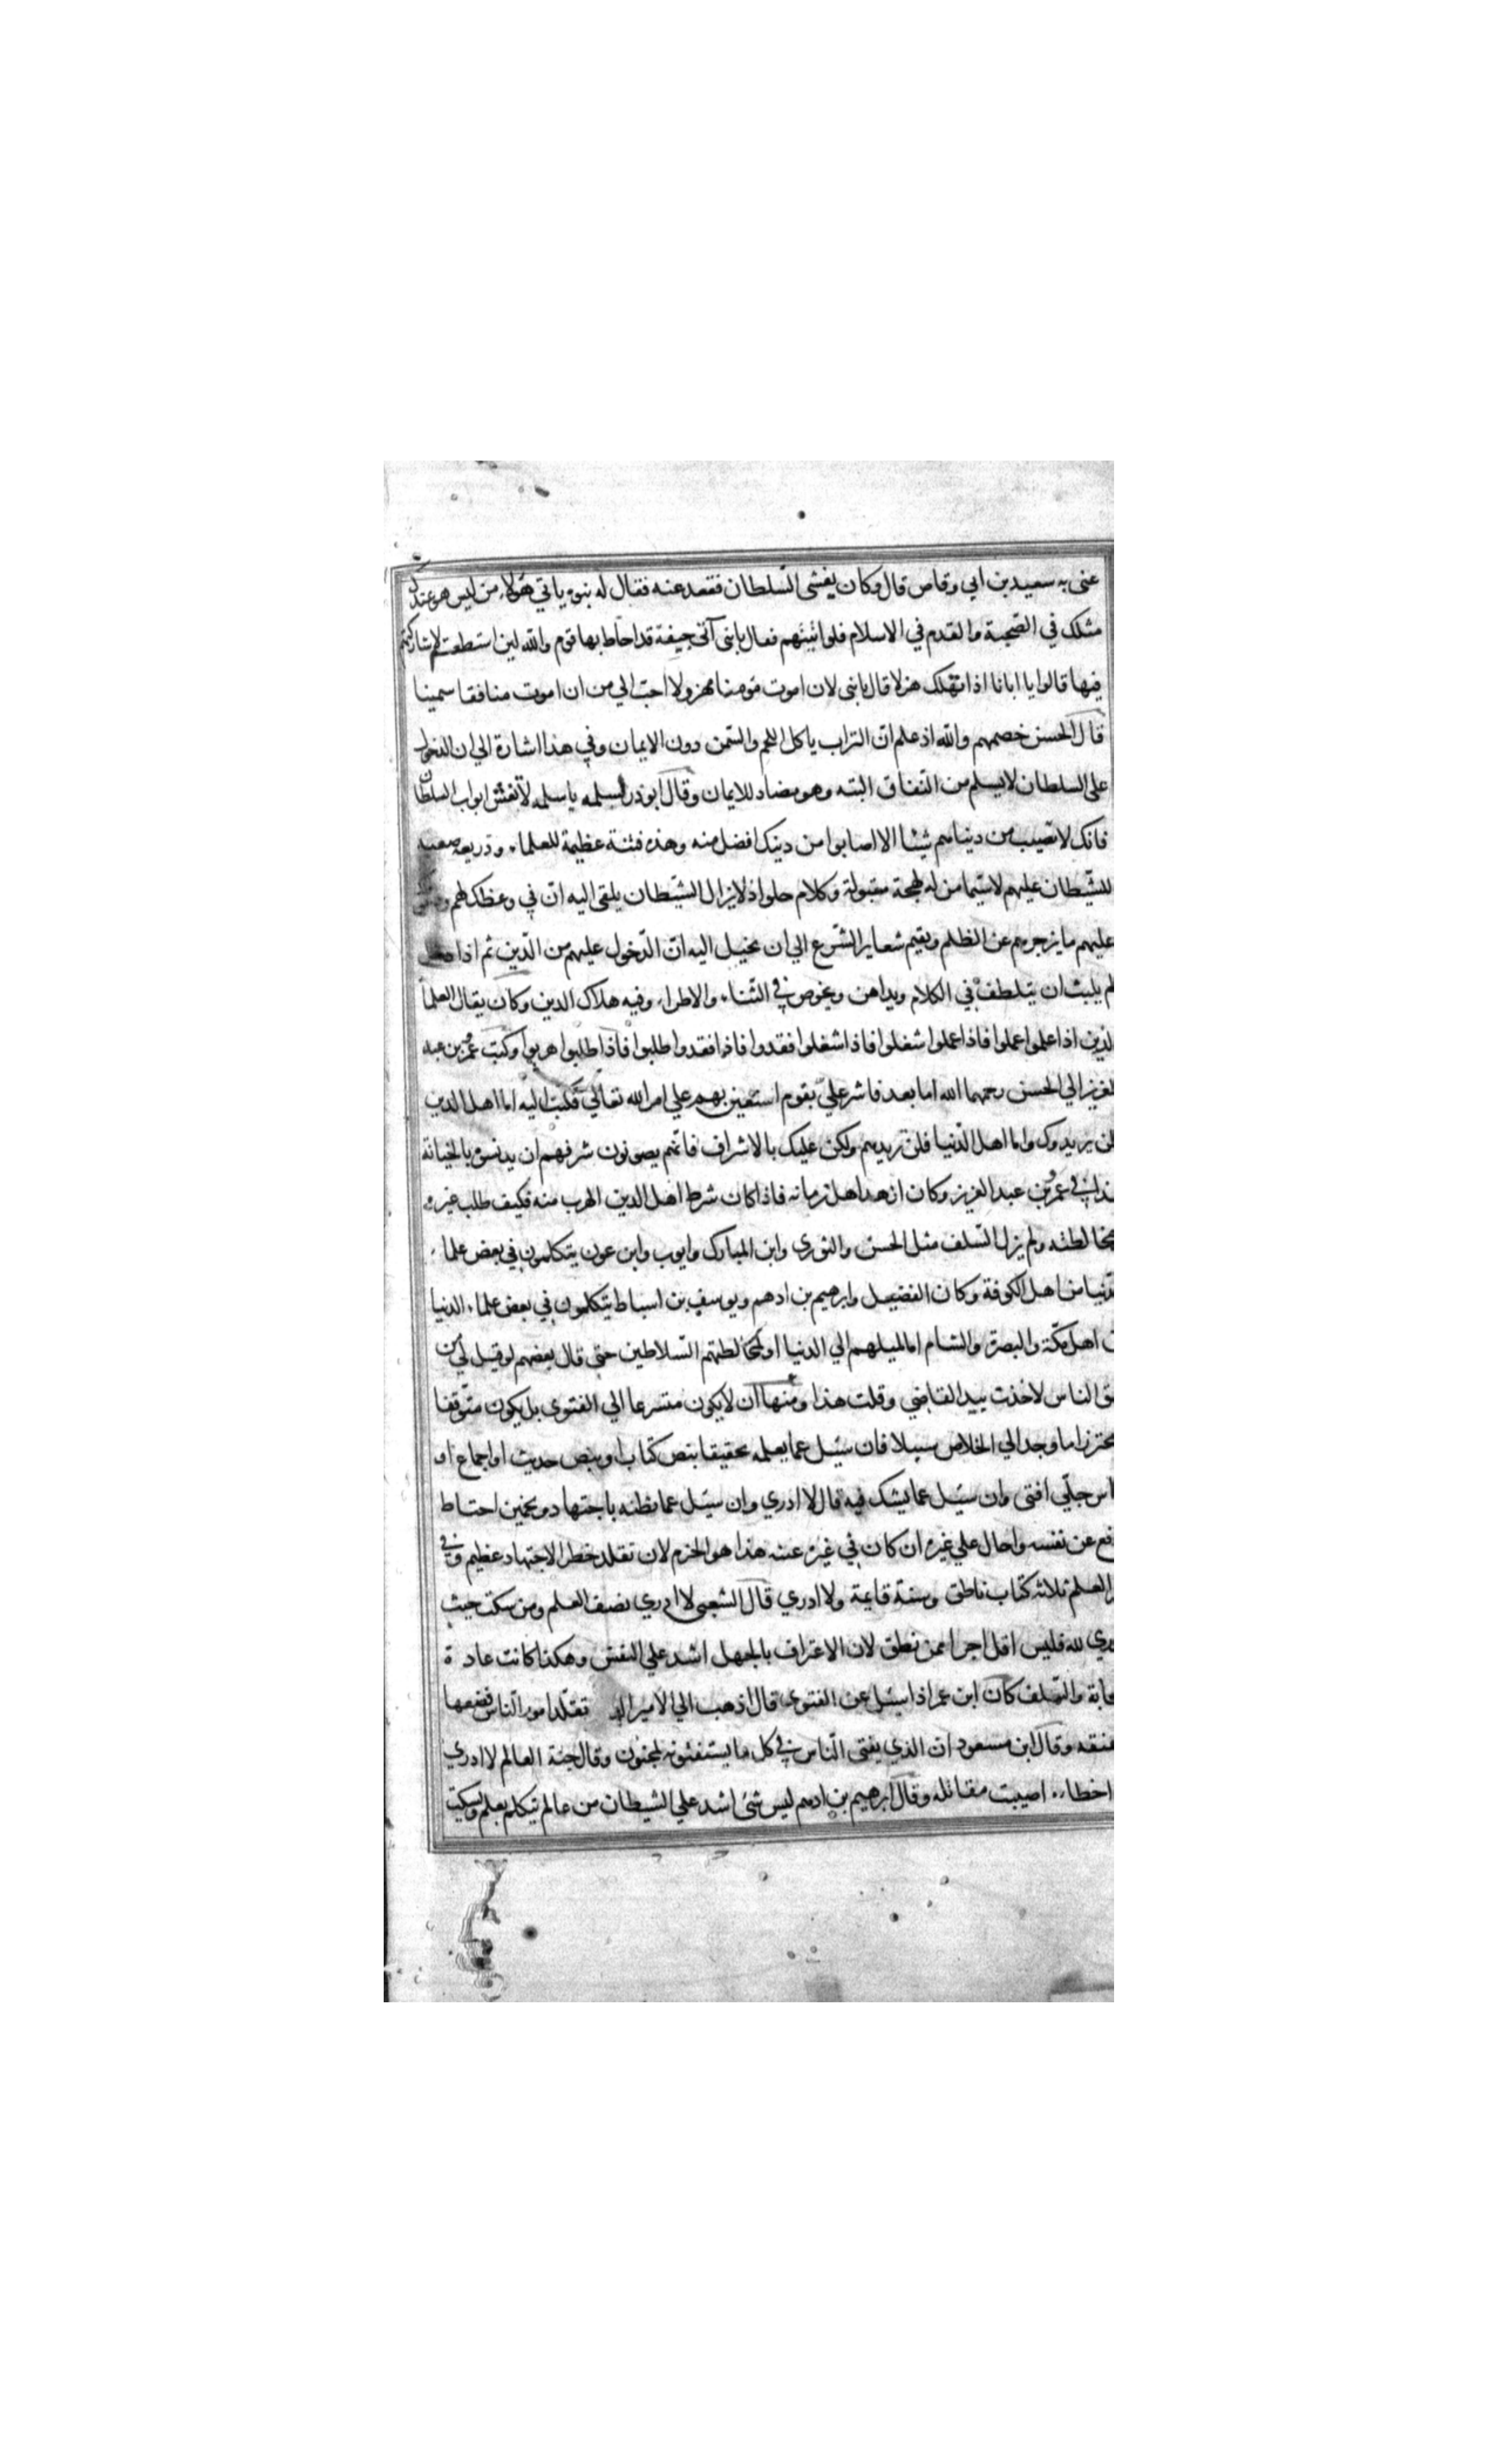 عنى به سعيد بن ابي وقاص قال وكان يغشى السّلطان فقعد عنه فقال له بنوه ياتي هولاء من ليس هو عندك
مثلك في الصّحبة والقدم في الاسلام فلو اتيتهم فعال يا بنى آتى جيفة قد احاط بها قوم والله لين استطعت لا شاركتهم
فيها قالوا يا ابانا اذا تهلك هزلا قال يا بنى لان اموت مومنا مهزولا احبّ الي من ان اموت منافقا سمينا
قال الحسن خصمهم والله اذ علم انّ التراب ياكل اللحم والسّمن دون الايمان وفي هذا اشارة الي ان الدخول
على السلطان لا يسلم من النّفاق البته وهو مضاد للايمان وقال ابوذر لسلمه يا سلمه لا تغش ابواب السلطان
فانك لا تصيب من دنياهم شيئا الا اصابوا من دينك افضل منه وهذه فتنة عظيمة للعلماء وذريعه صعبه
للشّيطان عليهم لاسيّما من له لهجة مقبولة وكلام حلو اذ لا يزال الشيّطان يلقى اليه انّ في وعظك لهم
عليهم ما يزجرهم عن الظلم ويقيم شعاير الشّرع الي ان يخيل اليه انّ الدّخول عليهم من الدّين ثم اذا دخل
لم يلبث ان يتلطف في الكلام ويداهن ويخوض في الثّناء والاطراء وفيه هلاك الدين وكان يقال العلما
لذين اذا علموا عملوا فاذا عملوا شغلوا فاذا شغلوا فقدوا فاذا فقدوا طلبوا فاذا طلبوا هربوا وكتب عمر بن عبد
لعزيز الي الحسن رحمهما الله اما بعد فاشر عليّ بقوم استعين بهم علي امر الله تعالي فكتب اليه اما اهل الدين
لن يريدوك واما اهل الدّنيا فلن تريدهم ولكن عليك بالاشراف فانّهم يصونون شرفهم ان يدنسوه بالخيانة
هذا في عمر بن عبد العزيز وكان ازهد اهل زمانه فاذا كان شرط اهل الدين الهرب منه فكيف طلب غيره
مخالطته ولم يزل السّلف مثل الحسن والثوري وابن المبارك وايوب وابن عون يتكلمون في بعض علماء
لدّنيا من اهل الكوفة وكان الفضيل وابرهيم بن ادهم ويوسف بن اسباط يتكلمون في بعض علماء الدنيا
ن اهل مكّة والبصرة والشام اما لميلهم الي الدنيا او لمخالطتهم السّلاطين حتى قال بعضهم لو قيل لي من
ق الناس لاخذت بيد القاضي وقلت هذا ومنها ان لا يكون متسرعا الي الفتوى بل يكون متوّقفا
محترزا ما وجد الي الخلاص سبيلا فان سيئل عما يعلمه تحقيقا بنص كتاب او بنص حديث او اجماع او
اس جلّى افتى وان سيئل عما يشك فيه قال لا ادري وان سيئل عما يظنه باجتهاد وتخمين احتاط
فع عن نفسه واحال علي غيره ان كان في غيره غنيه هذا هو الحزم لان تقلد خطر الاجتهاد عظيم وفي
العلم ثلاثه كتاب ناطق وسنة قايمة ولا ادري قال الشعبى لا ادري نصف العلم ومن سكت حيث
دري لله فليس اقل اجرا ممن نطق لان الاعتراف بالجهل اشد علي النفس وهكذا كانت عادة
حابة والسّلف كان ابن عمر اذا سيئل عن الفتوى قال اذهب الي الامير تقلّد امور النّاس فضعها
عنقه وقال ابن مسعود انّ الذي يفتى النّاس في كل ما يستفتونه لمجنون وقال جنة العالم لا ادري
اخطاء اصيبت مقاتله وقال ابرهيم بن ادهم ليس شئ اشد علي الشيطان من عالم يتكلم بعلم ويسكت